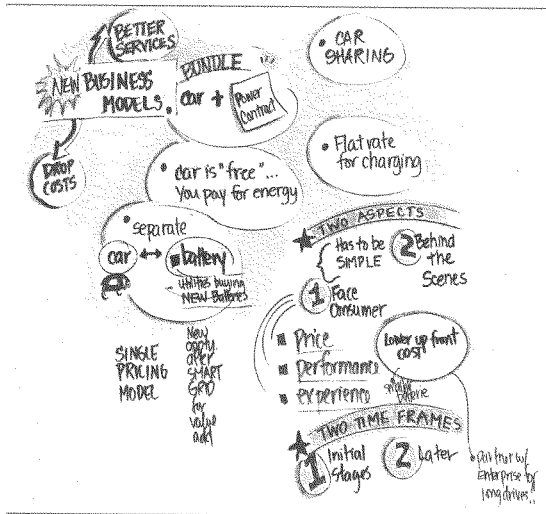 BETTER
SERVICES
NEW BUSINESS
MODELS
DROP
COSTS
BUNDLE
• car +
Power
Contract
• CAR
SHARING
• Flat rate
for charging
• car is "free"...
You pay for energy
• separate
car ↔ battery
- utilities buying
NEW Batteries
SINGLE
PRICING
MODEL
New
oppty.
over
SMART
GRID
for
value
add
★ TWO ASPECTS
Has to be
SIMPLE
2 Behind
the
Scenes
1 Face
Consumer
Price
Performance
experience
Lower up front
cost
★ TWO TIME FRAMES
1 Initial
Stages
2 Later
• partner w/
Enterprise for
long drives..